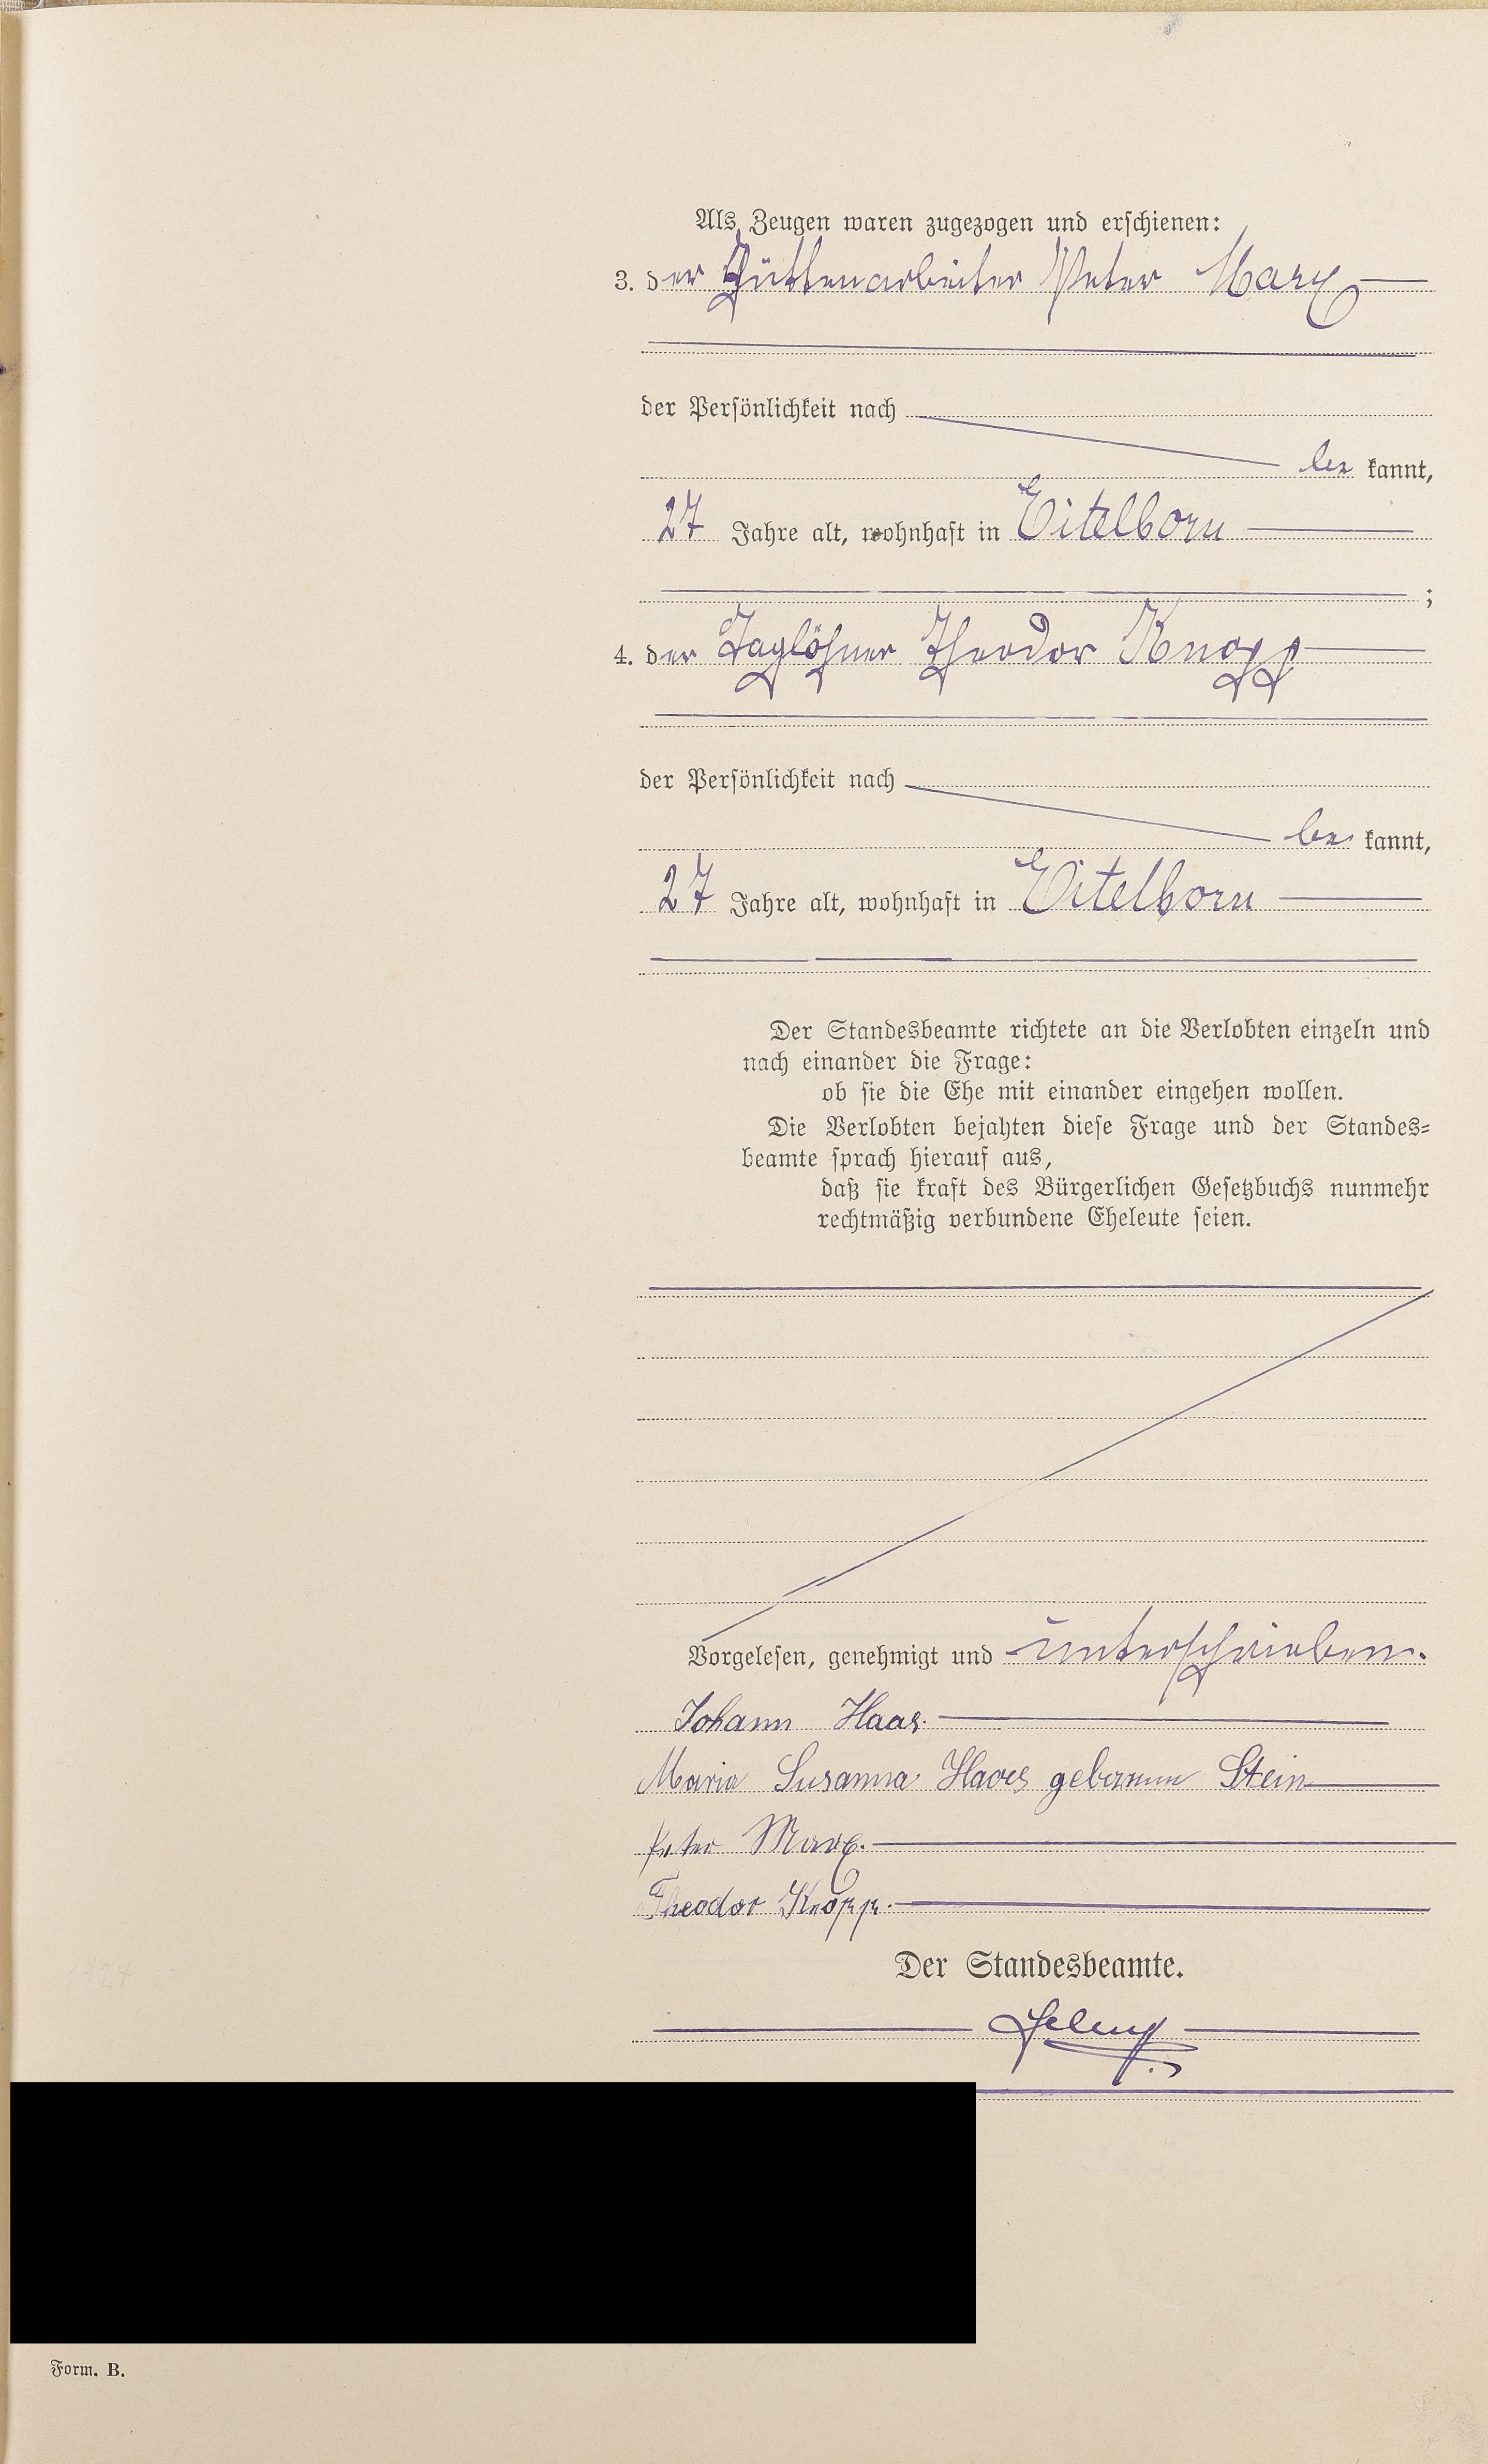 Als Zeugen waren zugezogen und erschienen:
3. der Hüttenarbeiter Peter Marx
der Persönlichkeit nach
be kannt,
27 Jahre alt, wohnhaft in Eitelborn
;
4. der Taglöhner Theodor Knopp
der Persönlichkeit nach
be kannt,
27 Jahre alt, wohnhaft in Eitelborn
Der Standesbeamte richtete an die Verlobten einzeln und
nach einander die Frage:
ob sie die Ehe mit einander eingehen wollen.
Die Verlobten bejahten diese Frage und der Standes-
beamte sprach hierauf aus,
daß sie kraft des Bürgerlichen Gesetzbuchs nunmehr
rechtmäßig verbundene Eheleute seien.
Vorgelesen, genehmigt und unterschrieben.
Johann Haas.
Maria Susanna Haas geborene Stein
Peter Marx.
Theodor Knopp.
Der Standesbeamte.
Form. B.